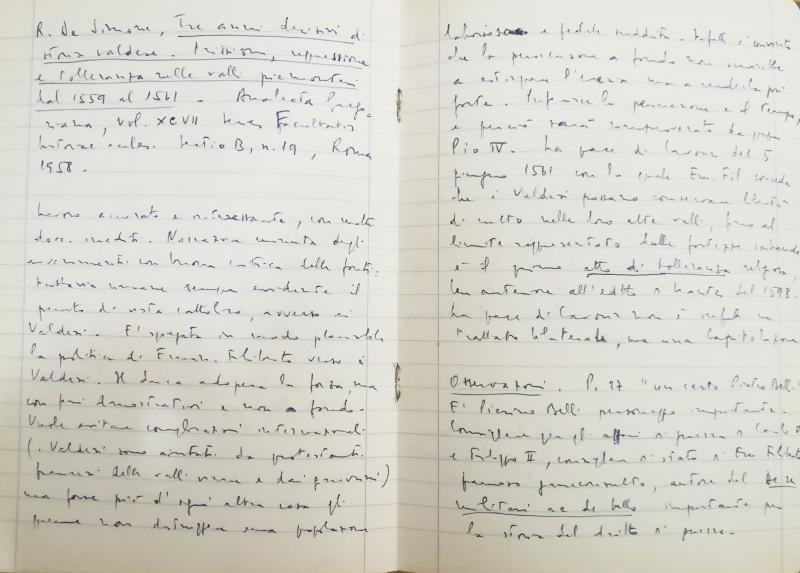 R. De Simone, Tre anni decisivi di
storia valdese. Missioni, repressione
e tolleranza nelle valli piemontesi
dal 1559 al 1561. Analecta Grego-
riana, vol. XCVII series Facultatis
historiae eccles. sectio B, n. 19, Roma
1958.
Lavoro accurato e interessante, con molti
docc. inediti. Narrazione minuta degli
avvenimenti con buona critica delle fonti:
tuttavia rimane sempre evidente il
punto di vista cattolico, avverso ai
Valdesi. E' spiegata in modo plausibile
la politica di Eman. Filiberto verso i
Valdesi. Il duca adopera la forza, ma
con fini dimostrativi e non a fondo.
Vuole evitare complicazioni internazionali
(i Valdesi sono aiutati da protestanti
francesi delle valli vicine e dai ginevrini)
ma forse più d'ogni altra cosa gli
preme non distruggere una popolazione
laboriosa e fedele suddita. Infatti è convinto
che la persecuzione a fondo non riuscirebbe
a estirpare l'eresia ma a renderla più
forte. Preferisce la persuasione e il tempo,
e perciò sarà rimproverato da papa
Pio IV. La pace di Cavour del 5
giugno 1561 con la quale Em. Fil. concede
che i Valdesi possano conservare libertà
di culto nelle loro alte valli, fino al
limite rappresentato dalle fortezze sabaude
è il primo atto di tolleranza religiosa,
ben anteriore all'editto di Nantes del 1598.
La pace di Cavour non è infatti un
trattato bilaterale, ma una capitolazione
Osservazioni. P. 27 "un certo Pietro Belli"
E' Pierino Belli personaggio importante.
Consigliere per gli affari di guerra di Carlo V
e Filippo II, consigliere di stato di Em. Filiberto
famoso giureconsulto, autore del De re
militari ac de bello importante per
la storia del diritto di guerra.